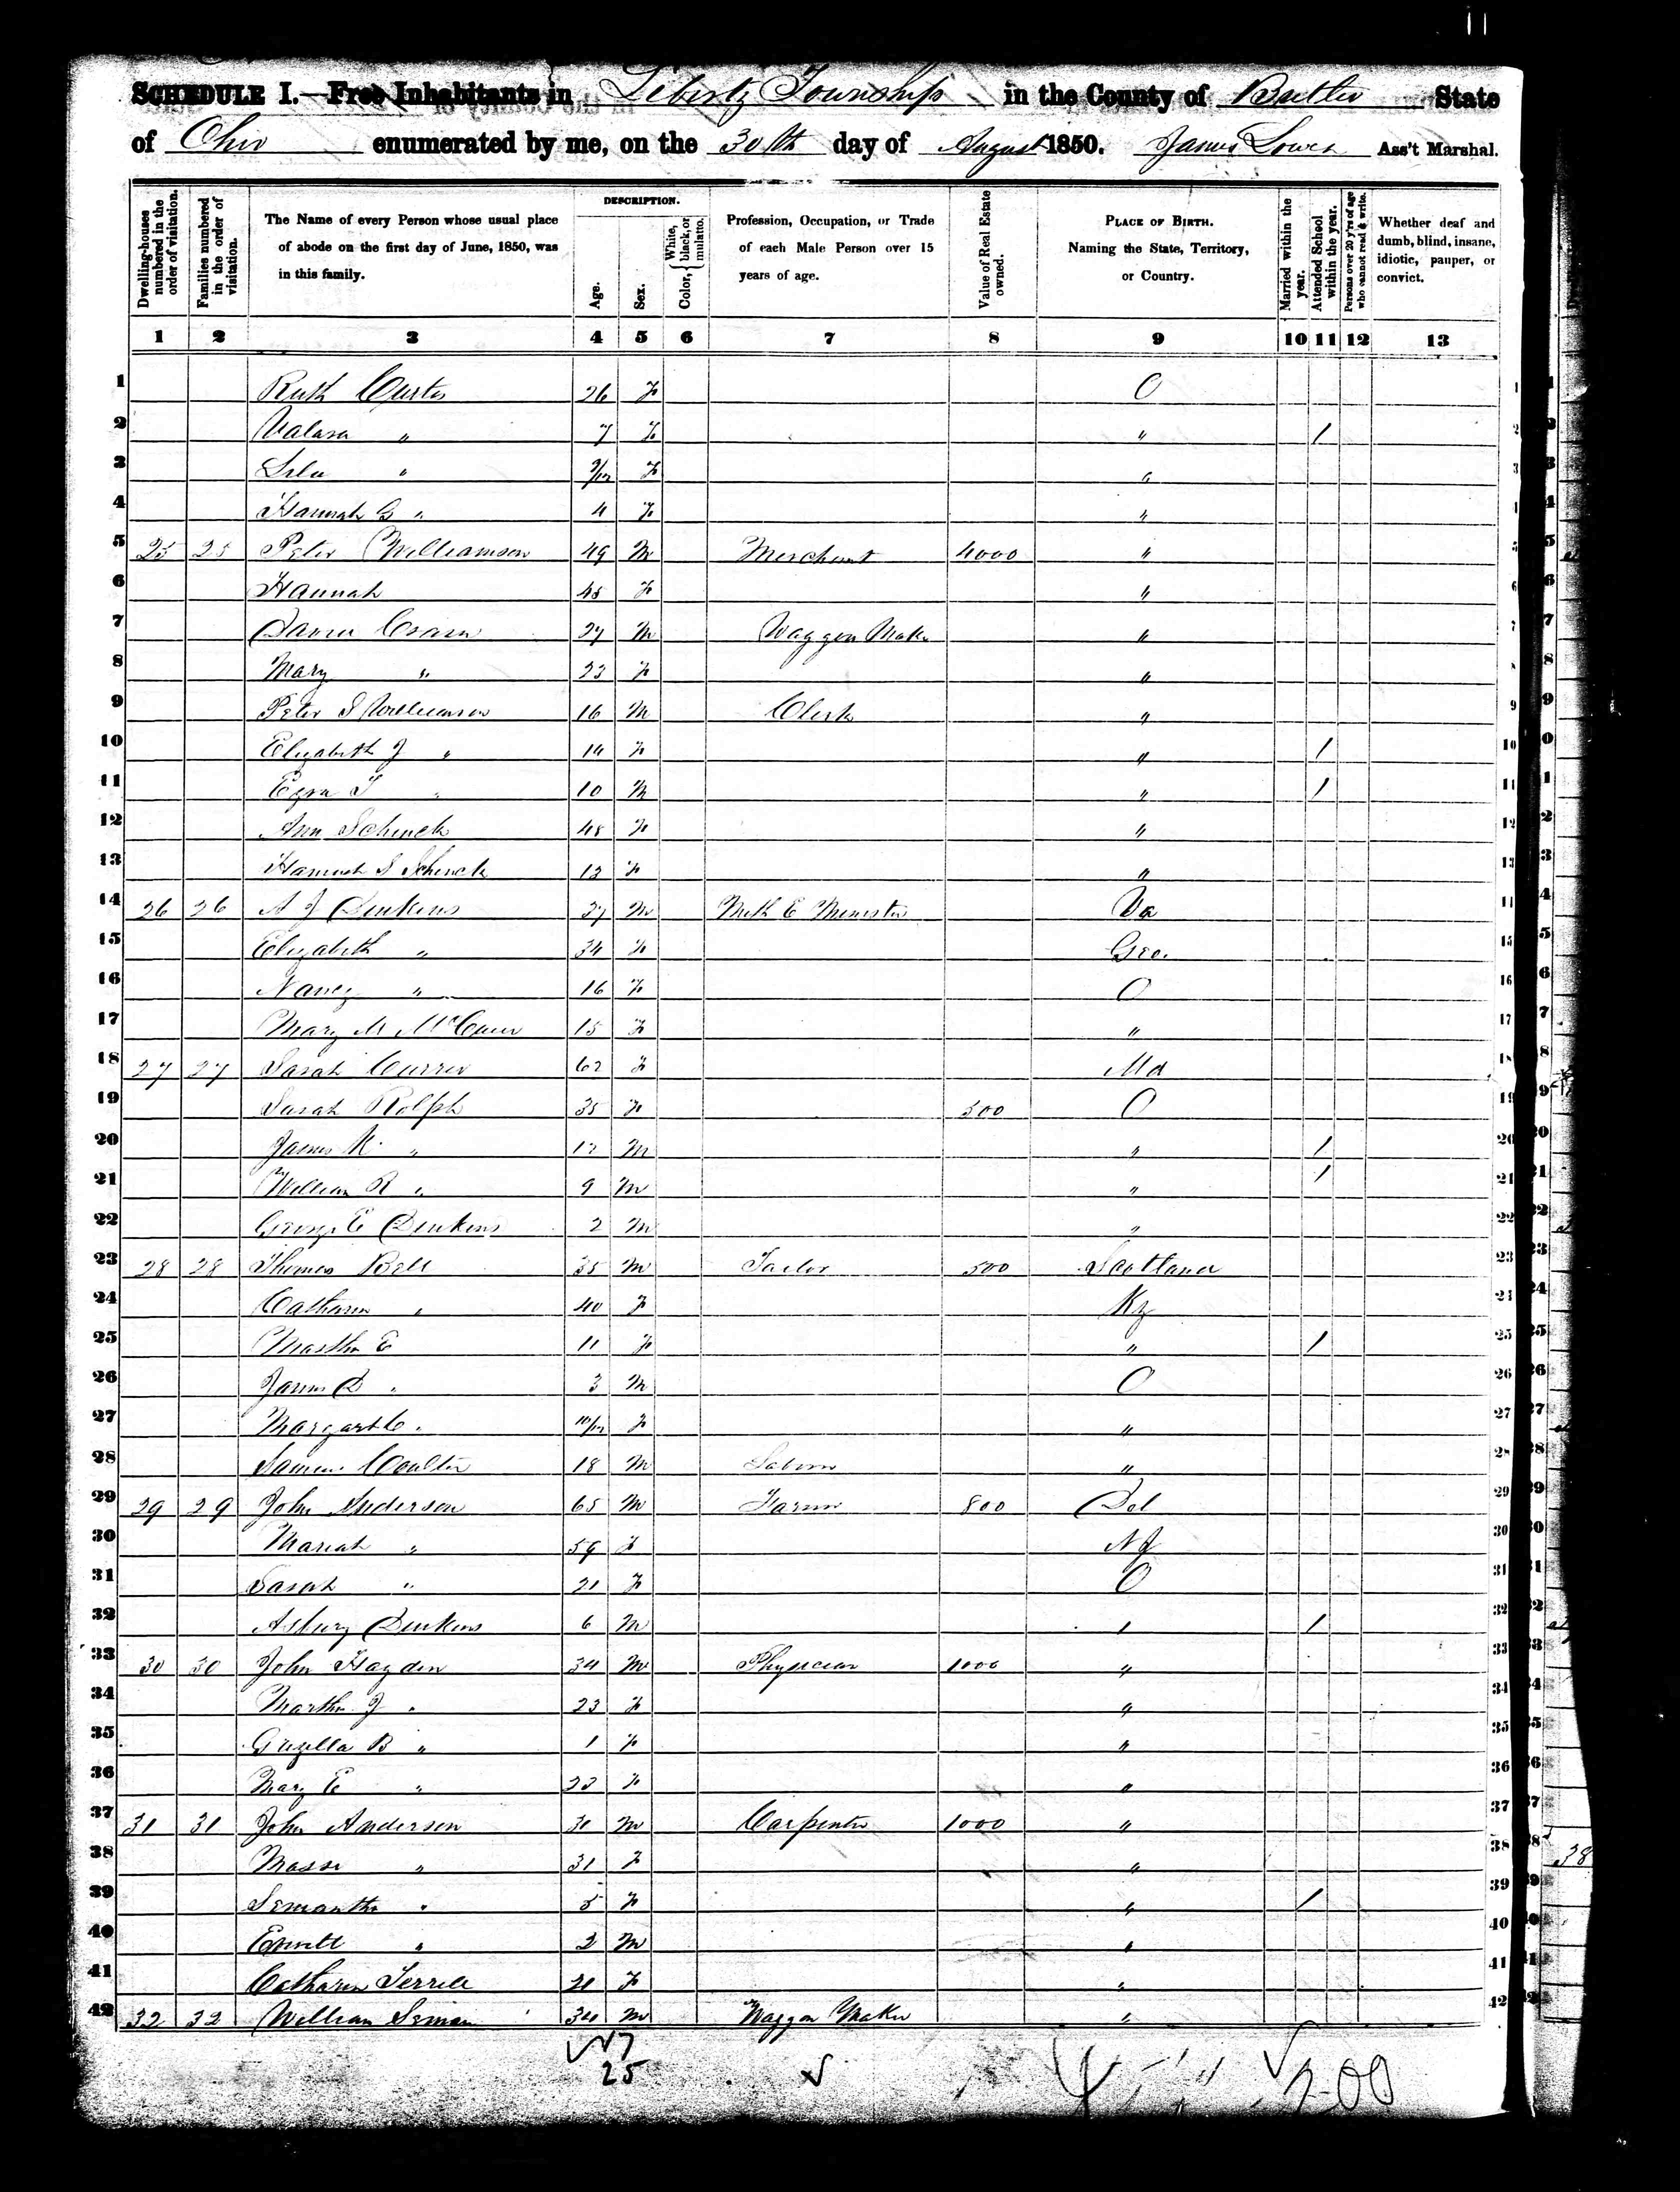 11
SCHEDULE I.—Free Inhabitants in Liberty Township in the County of Butler State
of Ohio enumerated by me, on the 30th day of August 1850. James Lowes Ass't Marshal.
Dwelling-houses numbered in the order of visitation.
Families numbered in the order of visitation.
The Name of every Person whose usual place of abode on the first day of June, 1850, was in this family.
DESCRIPTION.
Age.
Sex.
Color, { White, black, or mulatto.
Profession, Occupation, or Trade of each Male Person over 15 years of age.
Value of Real Estate owned.
PLACE OF BIRTH. Naming the State, Territory, or Country.
Married within the year.
Attended School within the year.
Persons over 20 y'rs of age who cannot read & write.
Whether deaf and dumb, blind, insane, idiotic, pauper, or convict.
1 2 3 4 5 6 7 8 9 10 11 12 13
1 Ruth Curtis 26 F O 1
2 " 7 F " / 2
3 " 9/12 F " 3
4 Hannah G " 4 F "
5 25 25 Peter Williamson 49 M Merchant 4000 " 5
6 Hannah 45 F " 6
7 27 M Waggon Maker " 7
8 Mary " 23 F " 8
9 Peter S Williamson 16 M Clerk " 9
10 Elizabeth J " 14 F " / 10
11 Ezra T " 10 M " / 11
12 Ann Schenck 48 F " 12
13 Hannah S Schenck 13 F " 13
14 26 26 A J Denkins 37 M Meth E Minister Va
15 Elizabeth " 34 F Geo. 15
16 Nancy " 16 F O 16
17 Mary M 15 F " 17
18 27 27 Sarah 62 F Md 18
19 Sarah Rolph 35 F 500 O 19
20 James K " 12 M " / 20
21 William R " 9 M " / 21
22 George E Denkins 2 M " 22
23 28 28 Thomas Bell 35 M Tailor 500 Scotland 23
24 Catharin " 40 F Ky
25 Martha E 11 F " / 25
26 James D " 3 M O 26
27 Margaret C " 10/12 F " 27
28 Coulter 18 M " 28
29 29 29 John Anderson 65 M Farmer 800 Del 29
30 Mariah " 59 F NJ 30
31 Sarah " 21 F O 31
32 Asbury Denkins 6 M " / 32
33 30 30 John Hayden 34 M Physician 1000 " 33
34 Martha J " 23 F " 34
35 B " 1 F " 35
36 Mary E " 23 F " 36
37 31 31 John Anderson 31 M Carpenter 1000 " 37
38 " 31 F " 38
39 Semantha " 5 F " / 39
40 " 2 M " 40
41 Catharin Terrell 21 F " 41
42 32 32 William 34 M Waggon Maker " 42
25
200
38